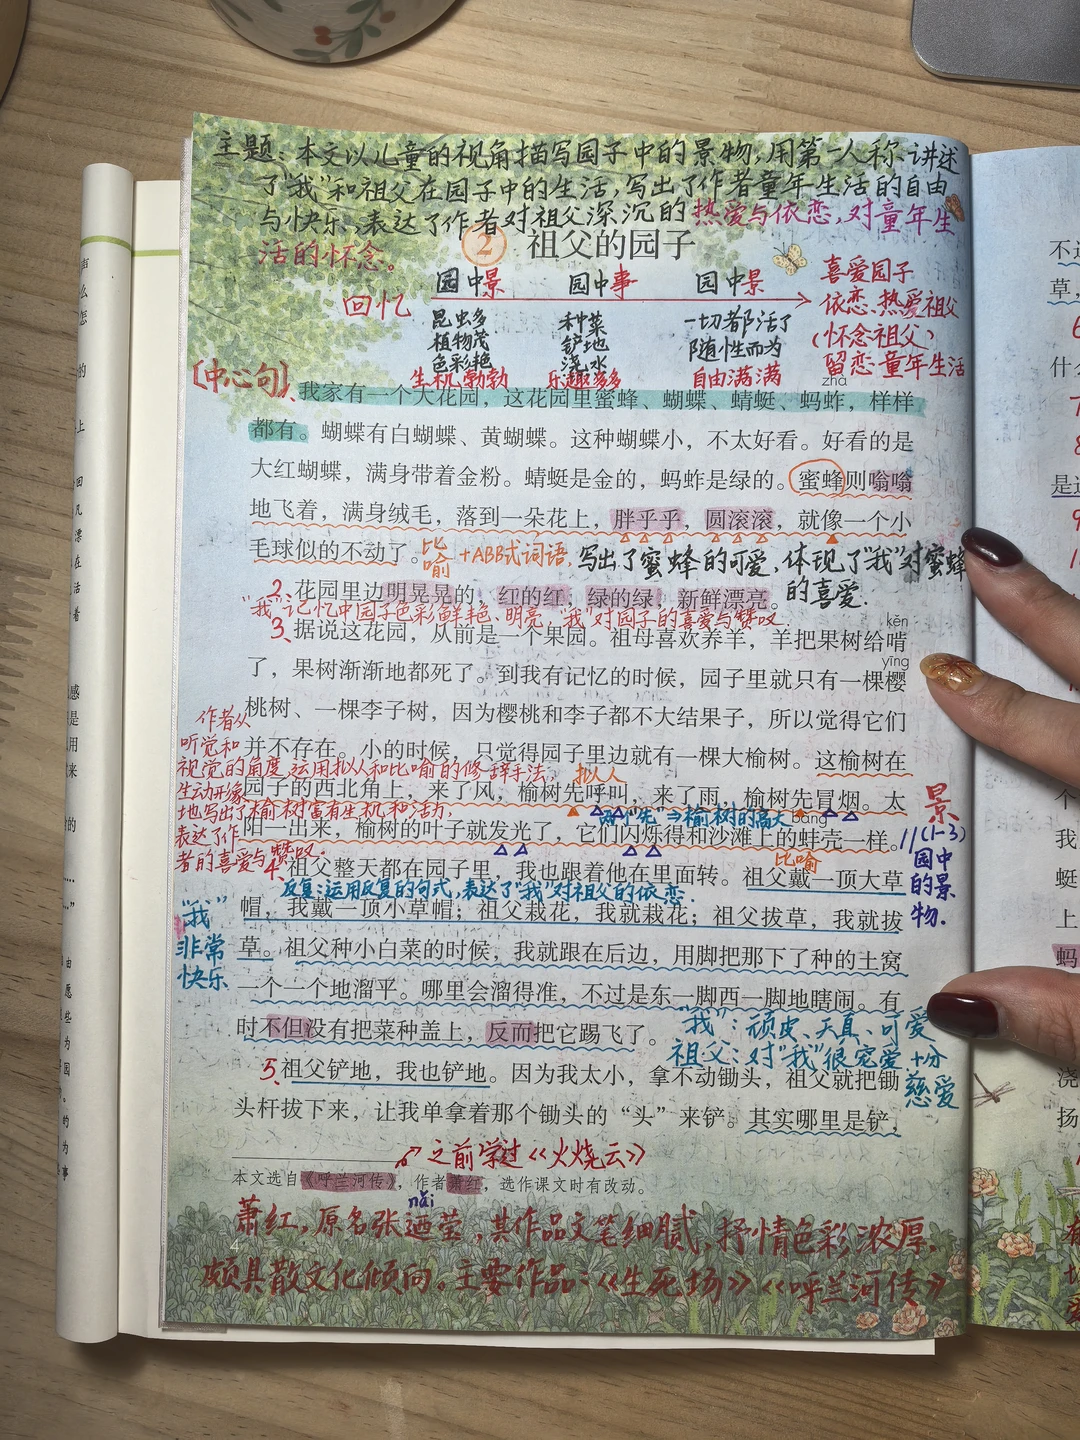 主题：本文以儿童的视角描写园子中的景物，用第一人称讲述
了“我”和祖父在园子中的生活，写出了作者童年生活的自由
与快乐，表达了作者对祖父深沉的热爱与依恋，对童年生
活的怀念。
2 祖父的园子
回忆
园中景 园中事 园中景
昆虫多 种菜 一切都活了
植物茂 铲地 随性而为
色彩艳 浇水
生机勃勃 乐趣多多 自由满满
喜爱园子
依恋、热爱祖父
（怀念祖父）
留恋童年生活
[中心句]
zhà
1、我家有一个大花园，这花园里蜜蜂、蝴蝶、蜻蜓、蚂蚱，样样
都有。蝴蝶有白蝴蝶、黄蝴蝶。这种蝴蝶小，不太好看。好看的是
大红蝴蝶，满身带着金粉。蜻蜓是金的，蚂蚱是绿的。蜜蜂则嗡嗡
地飞着，满身绒毛，落到一朵花上，胖乎乎，圆滚滚，就像一个小
毛球似的不动了。
比喻+ABB式词语，写出了蜜蜂的可爱，体现了“我”对蜜蜂
的喜爱.
2、花园里边明晃晃的，红的红，绿的绿，新鲜漂亮。
“我”记忆中园子色彩鲜艳、明亮，“我”对园子的喜爱与赞叹
kěn
3、据说这花园，从前是一个果园。祖母喜欢养羊，羊把果树给啃
yīng
了，果树渐渐地都死了。到我有记忆的时候，园子里就只有一棵樱
桃树、一棵李子树，因为樱桃和李子都不大结果子，所以觉得它们
并不存在。小的时候，只觉得园子里边就有一棵大榆树。这榆树在
作者从
听觉和
视觉的角度，运用拟人和比喻的修辞手法，
生动形象
地写出了榆树富有生机和活力，
表达了作
者的喜爱与赞叹.
拟人
园子的西北角上，来了风，榆树先呼叫，来了雨，榆树先冒烟。太
两个“先”⇒榆树的高大
bàng
阳一出来，榆树的叶子就发光了，它们闪烁得和沙滩上的蚌壳一样。
比喻
景
(1-3)
园中
的景
物.
4、祖父整天都在园子里，我也跟着他在里面转。祖父戴一顶大草
反复：运用反复的句式，表达了“我”对祖父的依恋.
帽，我戴一顶小草帽；祖父栽花，我就栽花；祖父拔草，我就拔
草。祖父种小白菜的时候，我就跟在后边，用脚把那下了种的土窝
一个一个地溜平。哪里会溜得准，不过是东一脚西一脚地瞎闹。有
时不但没有把菜种盖上，反而把它踢飞了。
“我”
非常
快乐
“我”：顽皮、天真、可爱
祖父：对“我”很宠爱，十分
慈爱
5、祖父铲地，我也铲地。因为我太小，拿不动锄头，祖父就把锄
头杆拔下来，让我单拿着那个锄头的“头”来铲。其实哪里是铲，
之前学过《火烧云》
本文选自《呼兰河传》，作者萧红，选作课文时有改动。
nǎi
萧红，原名张迺莹，其作品文笔细腻，抒情色彩浓厚，
颇具散文化倾向。主要作品：《生死场》《呼兰河传》
4